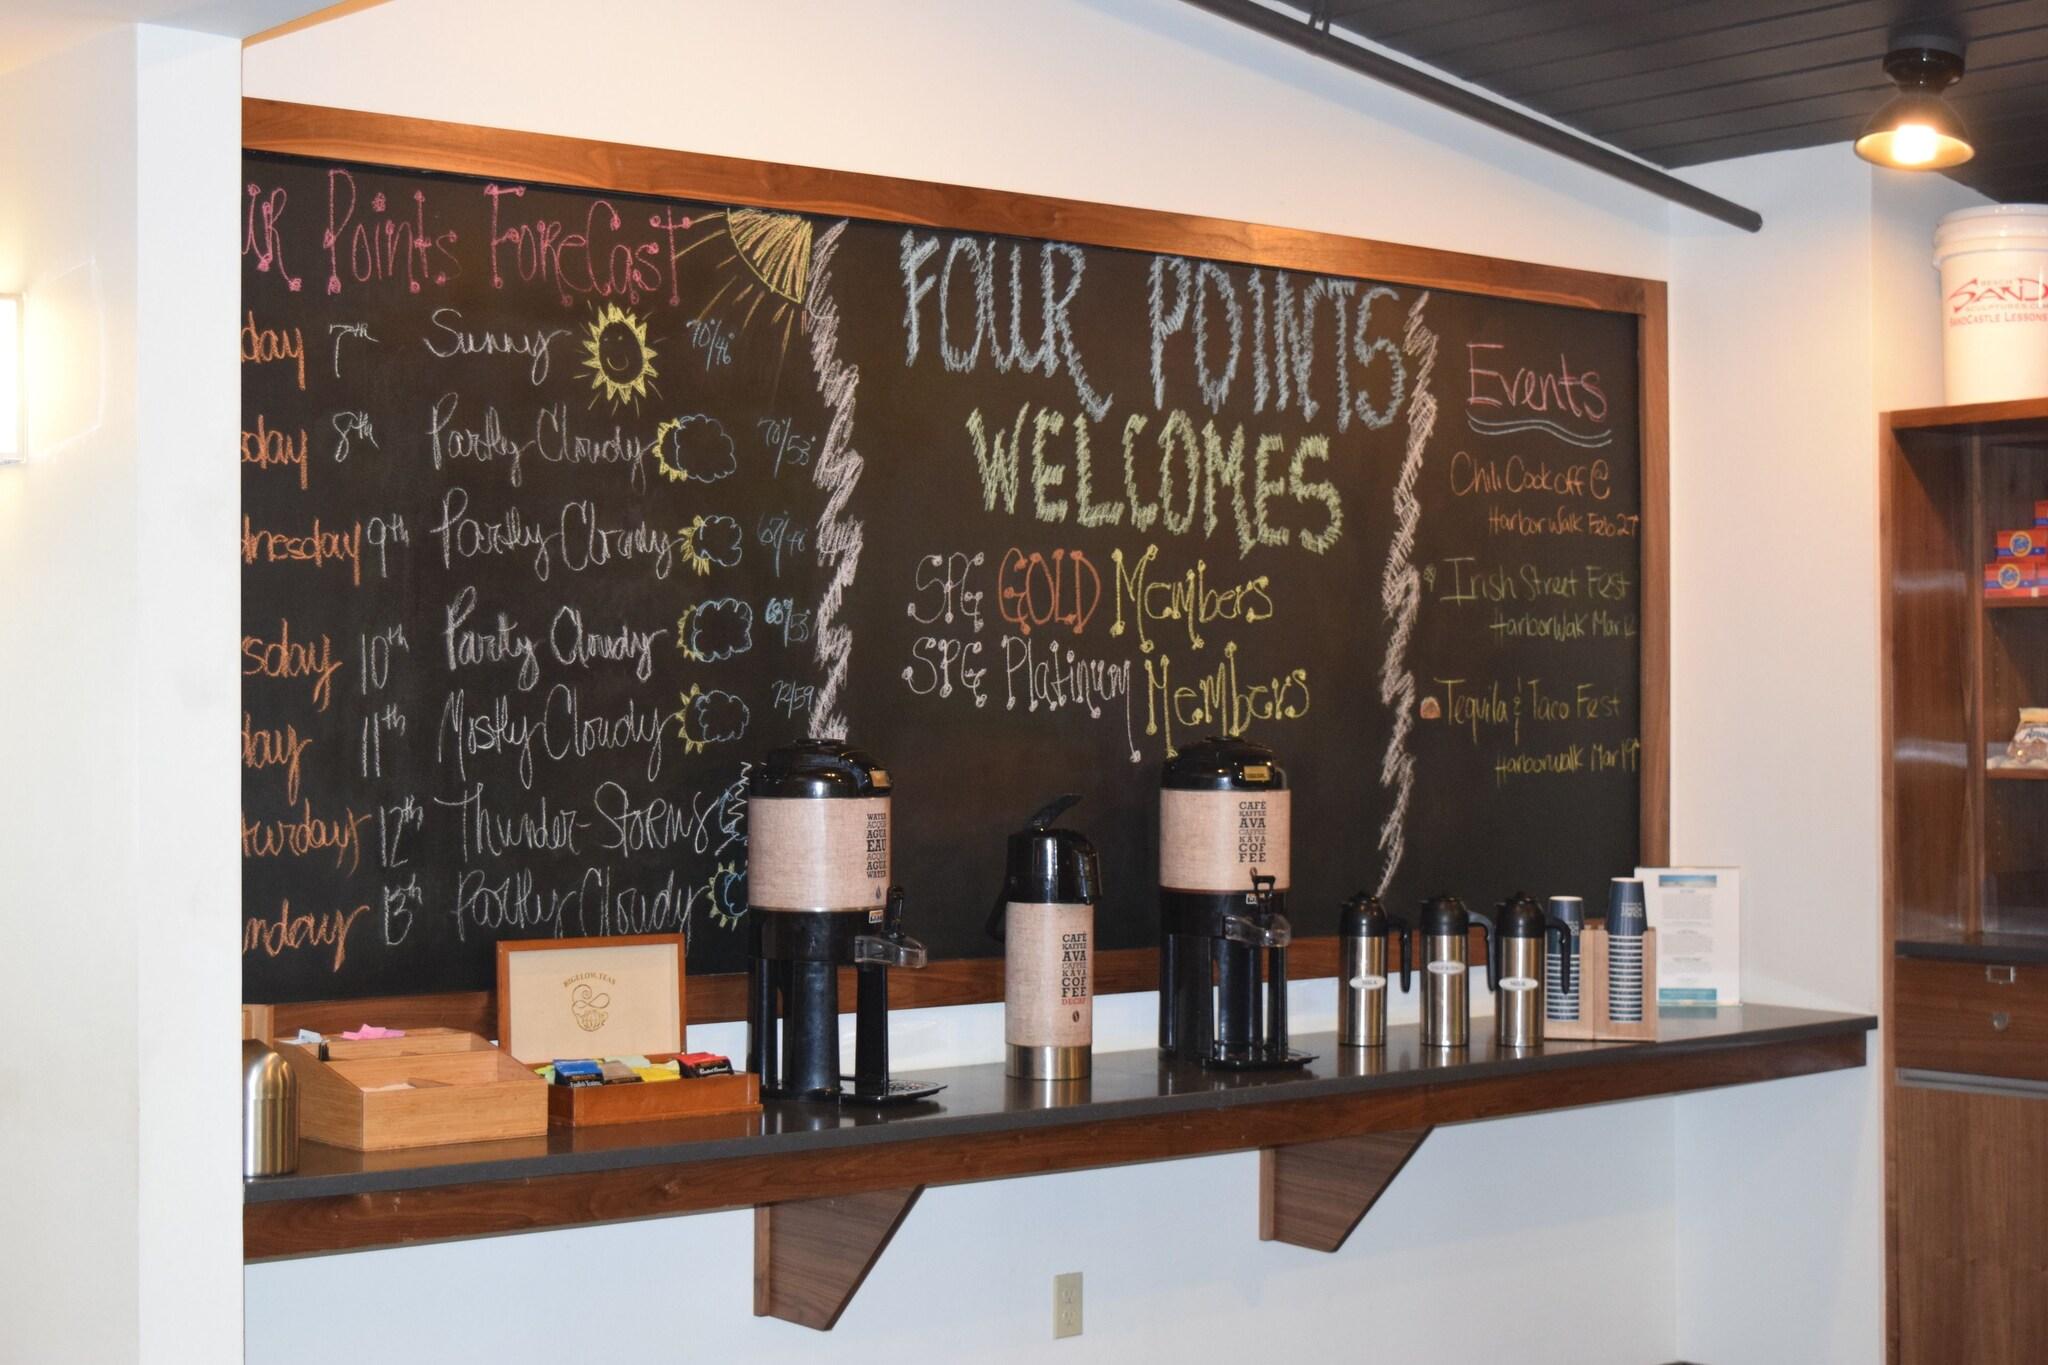 UR Points ForeCast
day 7th Sunny 70°/46°
sday 8th Partly Cloudy 70°/53°
dnesday 9th Partly Cloudy 67°/48°
sday 10th Party Cloudy 68°/53°
day 11th Mostly Cloudy 72/59
turday 12th Thunder-Storms
nday 13th Partly Cloudy
FOUR POINTS
WELCOMES
SPG GOLD Members
SPG Platinum Members
Events
Chili Cook off @
Harbor Walk Feb 27
Irish Street Fest
HarborWalk Mar 12
Tequila & Taco Fest
Harborwalk Mar 19
BIGELOW TEAS
WATER
ACQUA
AGUA
EAU
ACQUA
AGUA
WATER
CAFÉ
KAFFEE
AVA
CAFFÈ
KAVA
COF
FEE
DECAF
CAFÉ
KAFFEE
AVA
CAFFÈ
KAVA
COF
FEE
MILK
BEACH
SAND
SCULPTURES
SANDCASTLE LESSONS
Tide
Tide